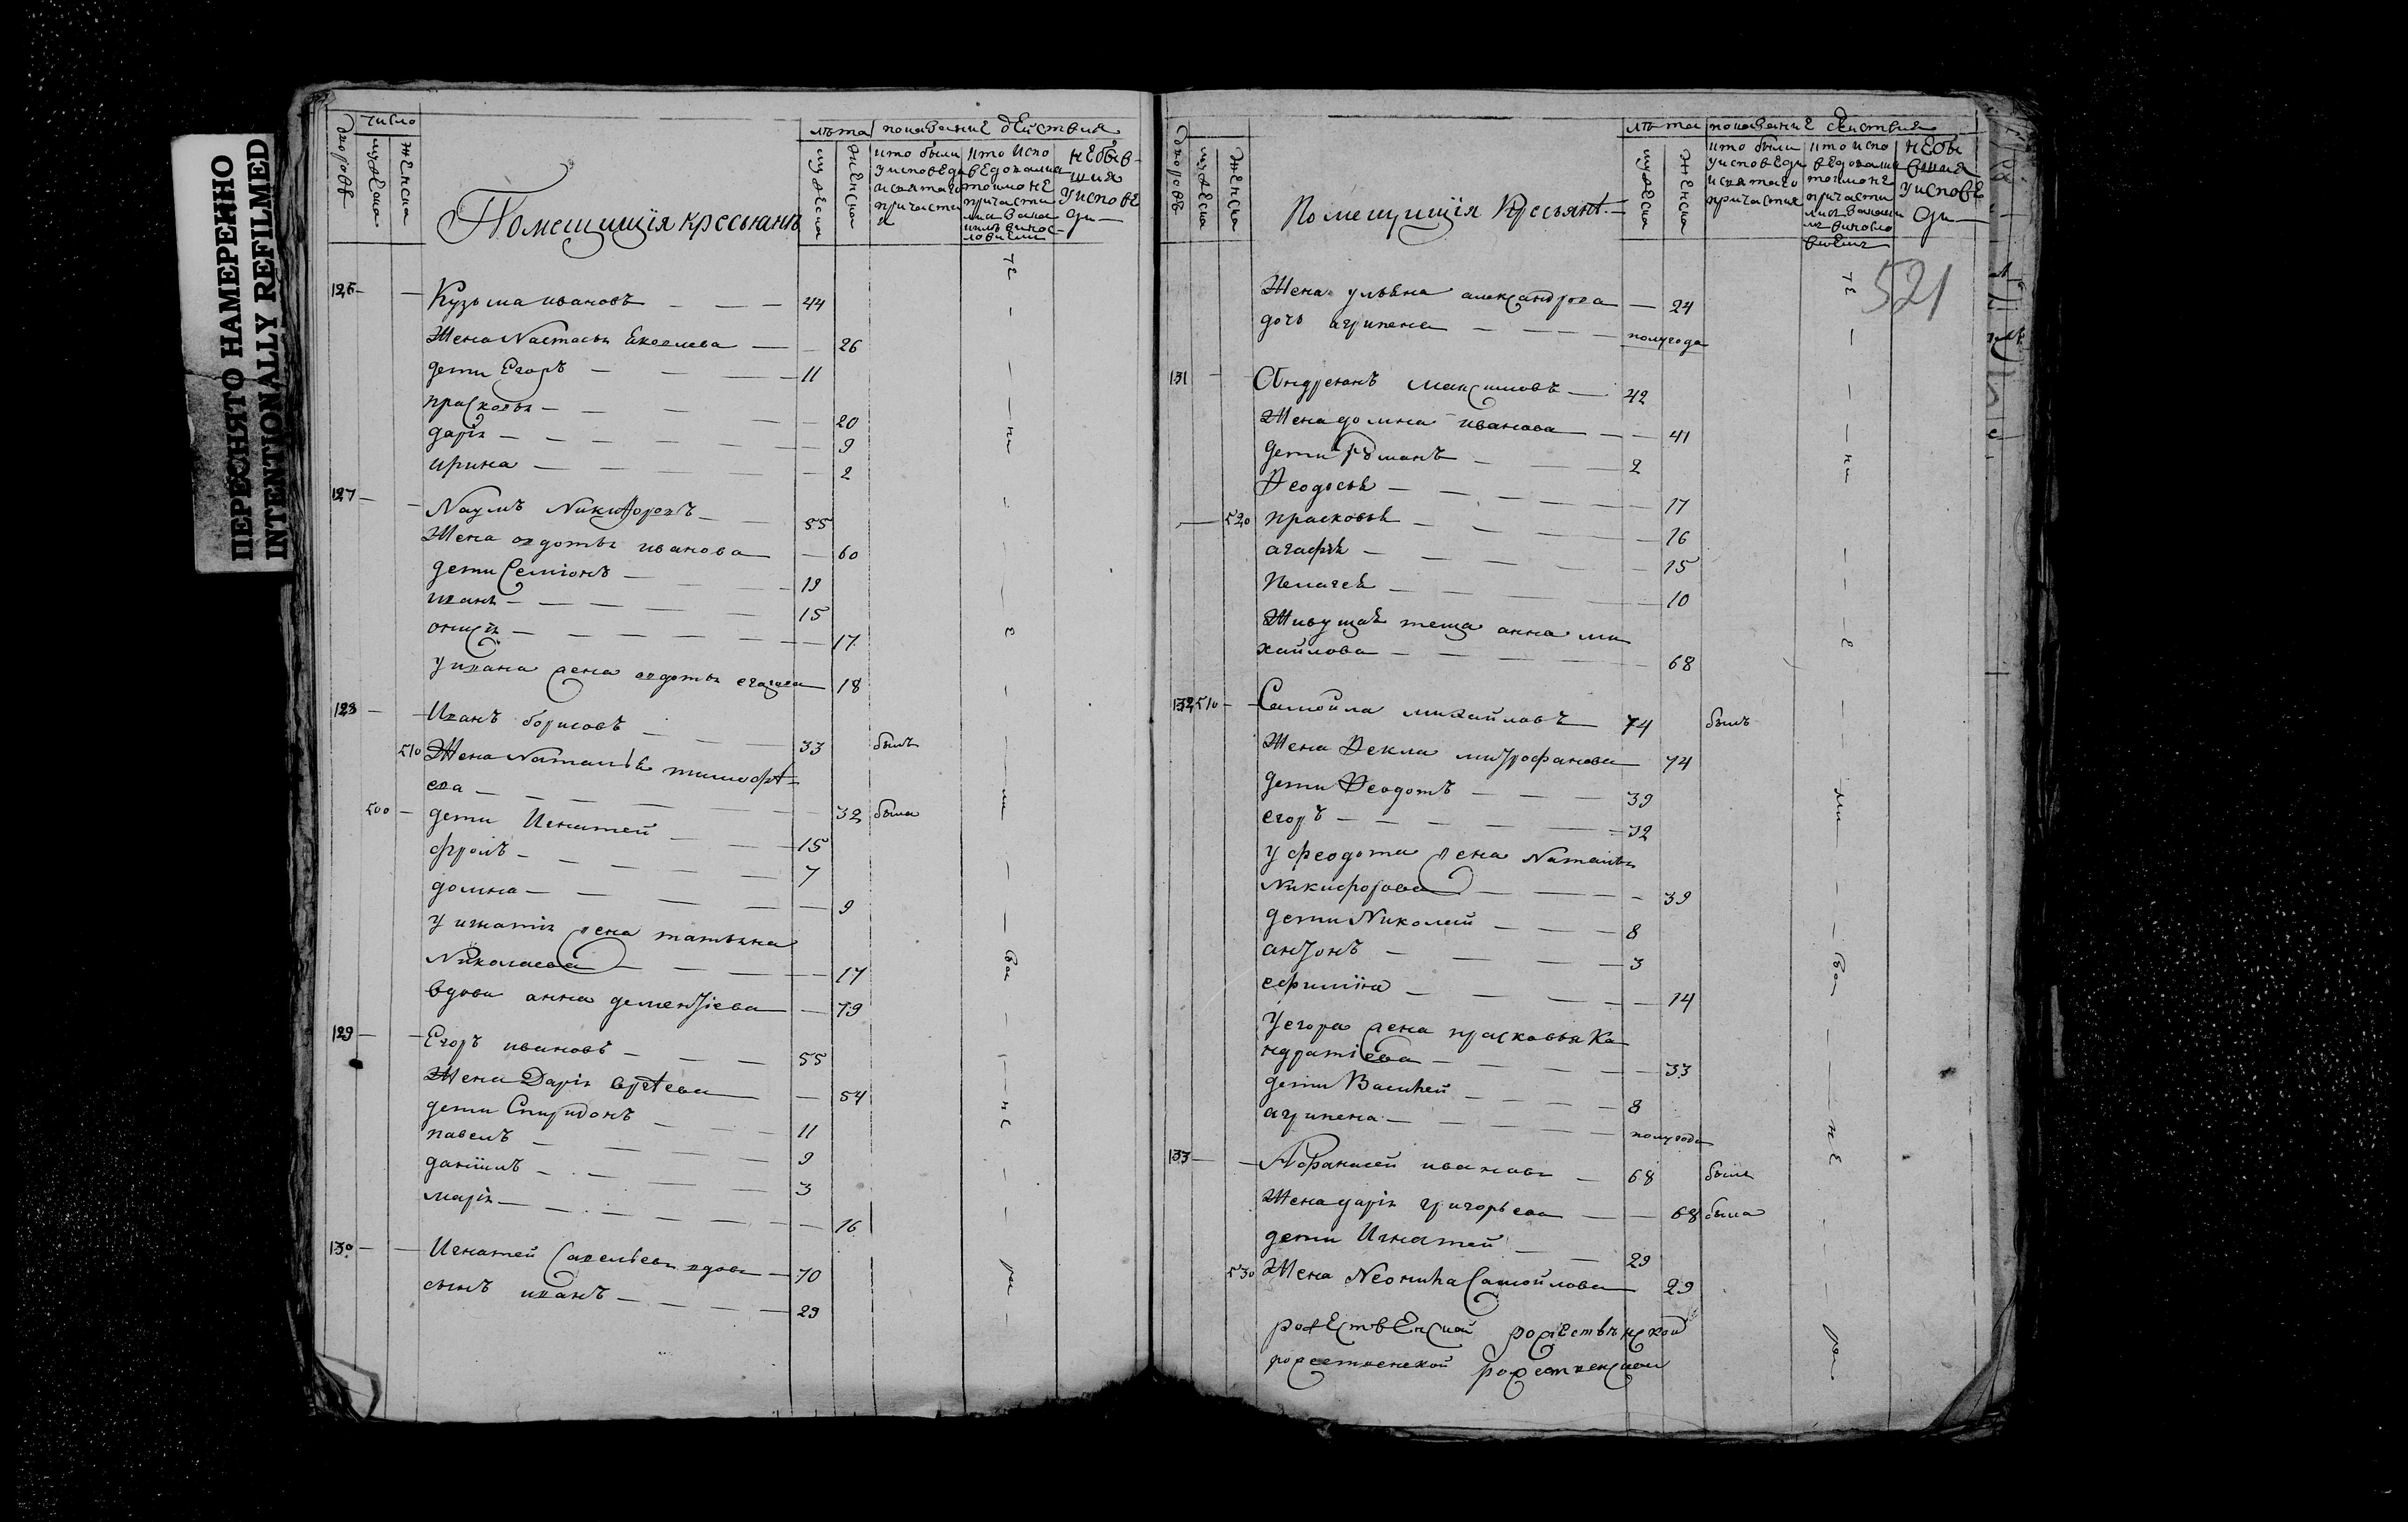 ПЕРЕСНЯТО НАМЕРЕННО
INTENTIONALLY REFILMED
число
дворовъ
мужеска
женска
Помещицкія крестьянъ
лѣта
мужеска
женска
показание действия
кто были
у исповеди
и святаго
причасти
я
кто испо
ведовалися
токмо не
причасти
не быв-
шия
у испове
ди
126
Кузьма ивановъ 44
Жена Настасья Яковлева 26
дети Егоръ 11
прасковья 20
дарія 9
ирина 2
127
Наумъ Никифоровъ 55
Жена авдотья иванова 60
дети Семіонъ 19
иванъ 15
онисія 17
у ивана жена авдотья 18
128
Иванъ борисовъ 33 былъ
510 Жена Наталья тимофѣ-
ева 32 была
500 дети Игнатей 15
фролъ 7
домна 9
у игнатія жена татьяна
Николаева 17
вдова анна дементіева 79
129
Егоръ ивановъ 55
Жена Дарія 54
дети Спиридонъ 11
павелъ 9
даніилъ 3
марія 16
130
Игнатей Савельевъ вдовъ 70
сынъ иванъ 29
дворовъ
мужеска
женска
Помещицкія крестьянѣ
лѣта
мужеска
женска
показание действия
кто были
у исповеди
и святаго
причастия
кто испо
ведовалися
токмо не
причасти
не бы
вшия
у испове
ди
521
Жена ульяна александрова 24
дочь агрипена полугода
131
Андреянъ Максимовъ 42
Жена домна иванова 41
дети Романъ 2
Феодосья 17
520 прасковья 16
агафья 15
Пелагея 10
Живущая теща анна ми
хайлова 68
132 510
Самойла михайловъ 74 былъ
Жена Фекла митрофанова 74
дети Феодотъ 39
егоръ 32
у феодота жена Наталья
Никифорова 39
дети Николай 8
антонъ 3
ефимія 14
у егора жена прасковья Ко
ндратіева 33
дети Василей 8
агрипена полугода
133
Афанасей ивановъ 68 былъ
Жена дарія григорьева 68 была
дети Игнатей 29
530 Жена Неонила Самойлова 29